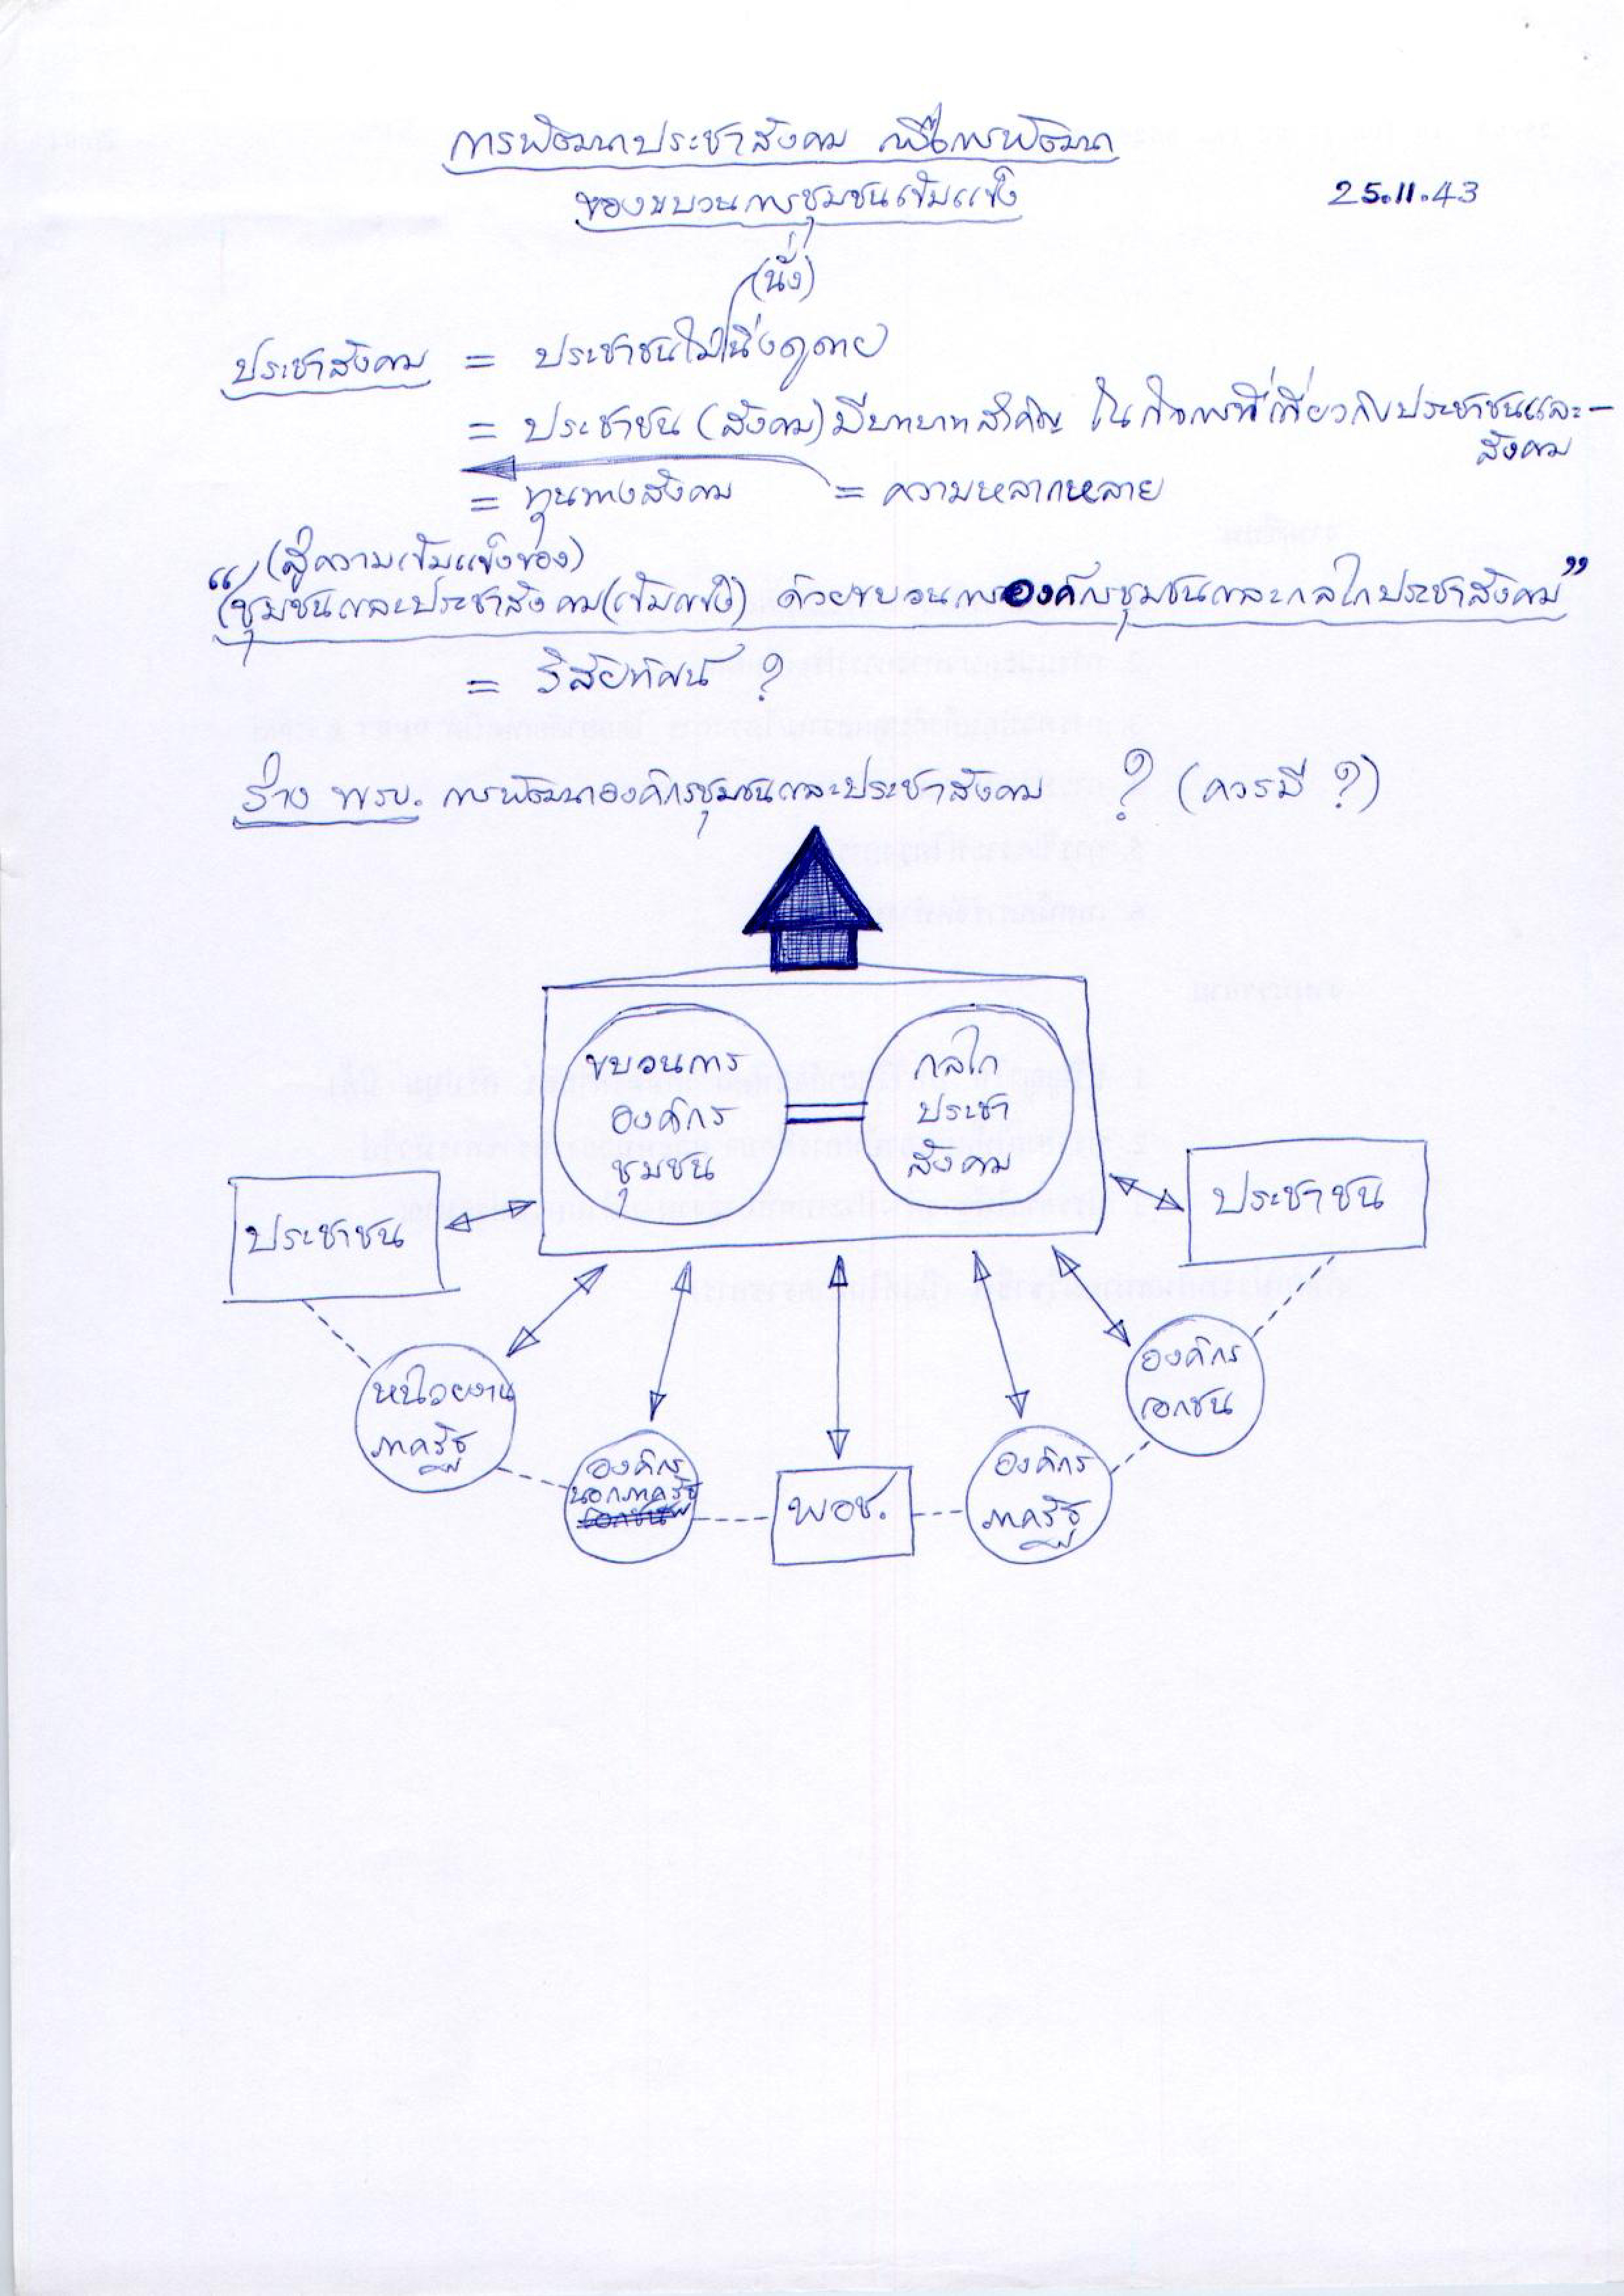 การพัฒนาประชาสังคม เพื่อการพัฒนา
ของขบวนการชุมชนเข้มแข็ง
25.11.43
(นั่ง)
ประชาสังคม = ประชาชนไม่นิ่งดูดาย
= ประชาชน (สังคม) มีบทบาทสำคัญ ในกิจการที่เกี่ยวกับประชาชนและ-
สังคม
= ทุนทางสังคม = ความหลากหลาย
(สู่ความเข้มแข็งของ)
“(ชุมชนและประชาสังคม(เข้มแข็ง) ด้วยขบวนการองค์กรชุมชนและกลไกประชาสังคม”
= วิสัยทัศน์ ?
ร่าง พรบ. การพัฒนาองค์กรชุมชนและประชาสังคม ? (ควรมี ?)
ขบวนการ
องค์กร
ชุมชน
กลไก
ประชา
สังคม
ประชาชน
ประชาชน
หน่วยงาน
ภาครัฐ
องค์กร
นอกภาครัฐ
เอกชน
พอช.
องค์กร
ภาครัฐ
องค์กร
เอกชน